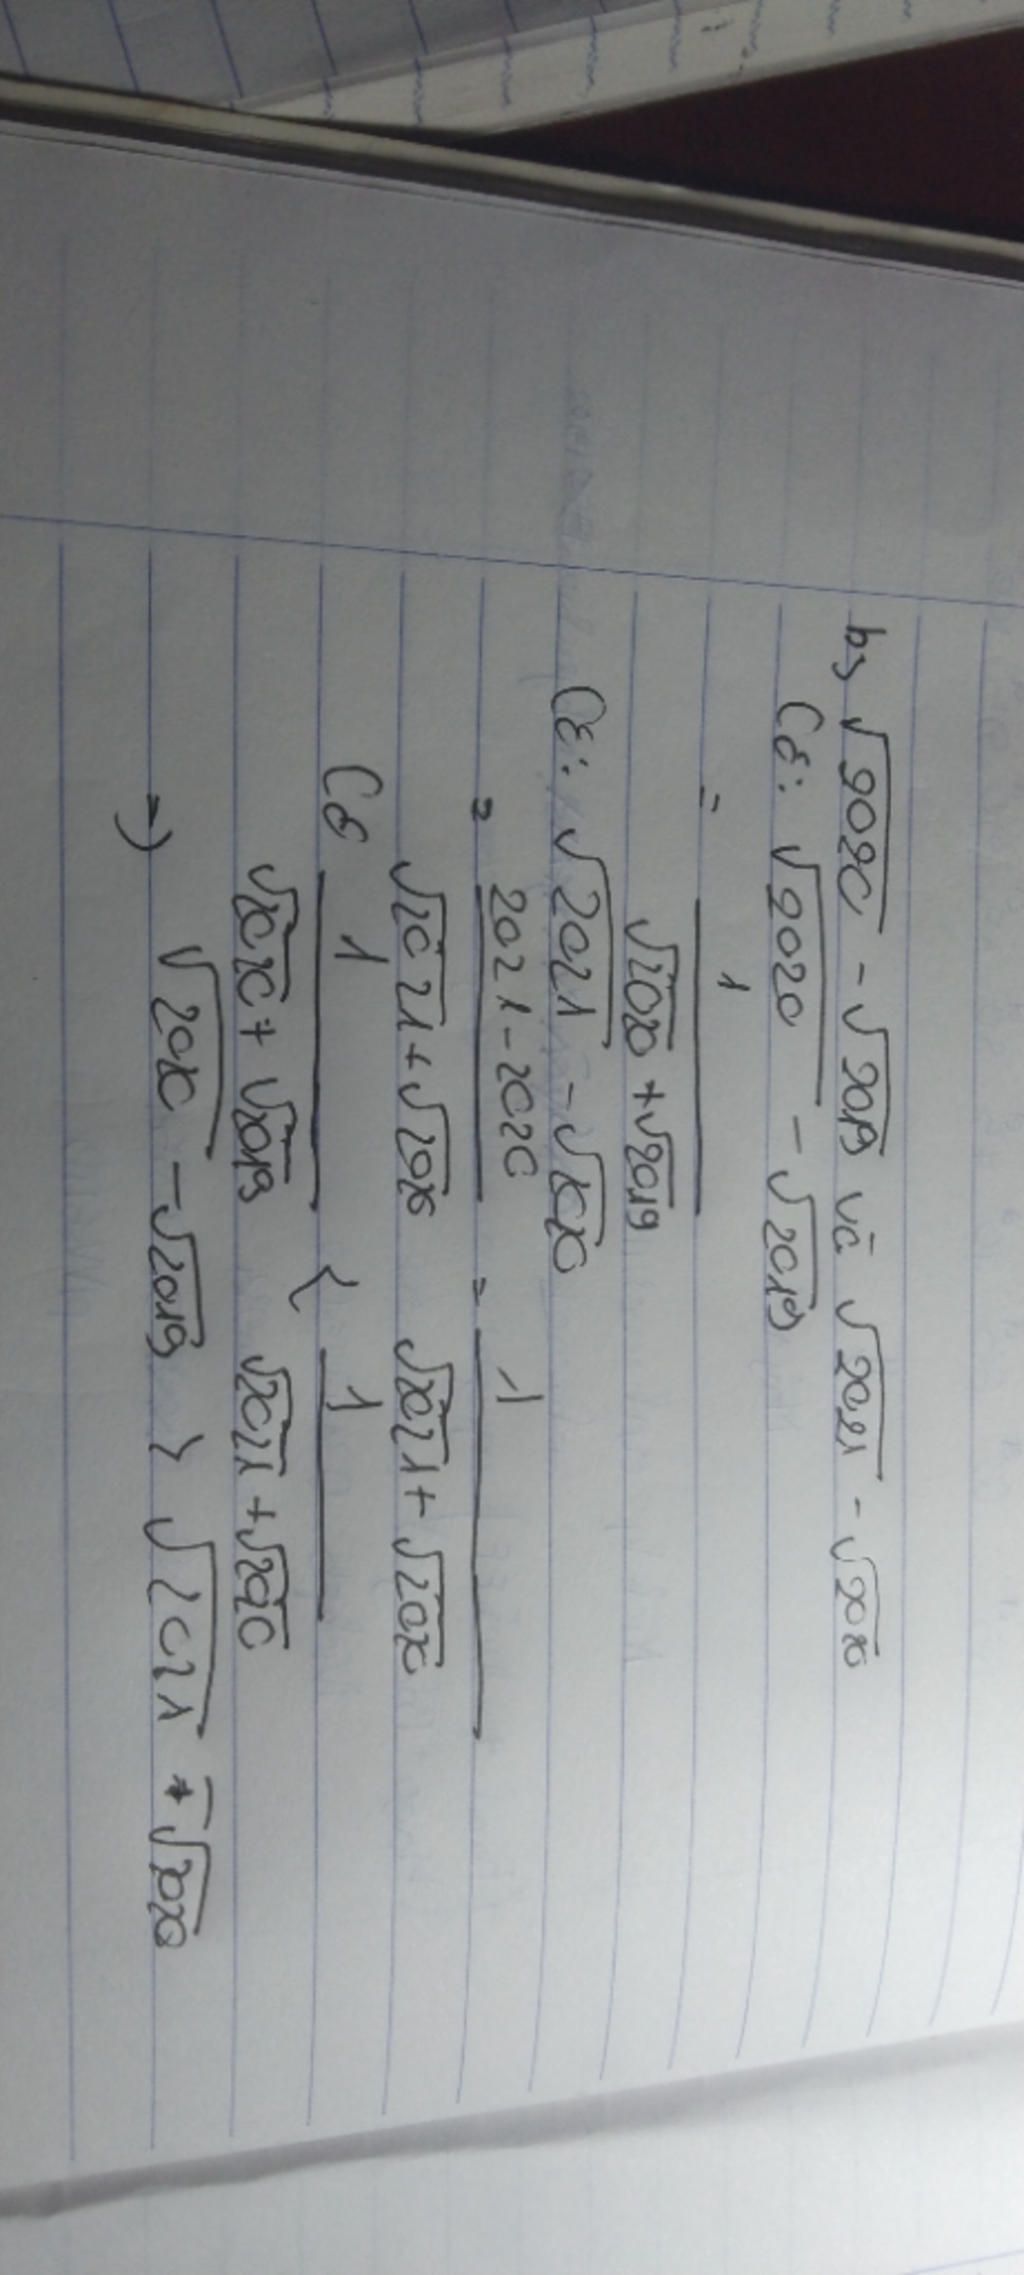 b, √2020 - √2019 và √2021 - √2020
Có: √2020 - √2019
= 1
√2020 + √2019
Có: √2021 - √2020
= 2021 - 2020 = 1
√2021 + √2020 √2021 + √2020
Có 1 < 1
√2020 + √2019 √2021 + √2020
=) √2020 - √2019 > √2021 - √2020